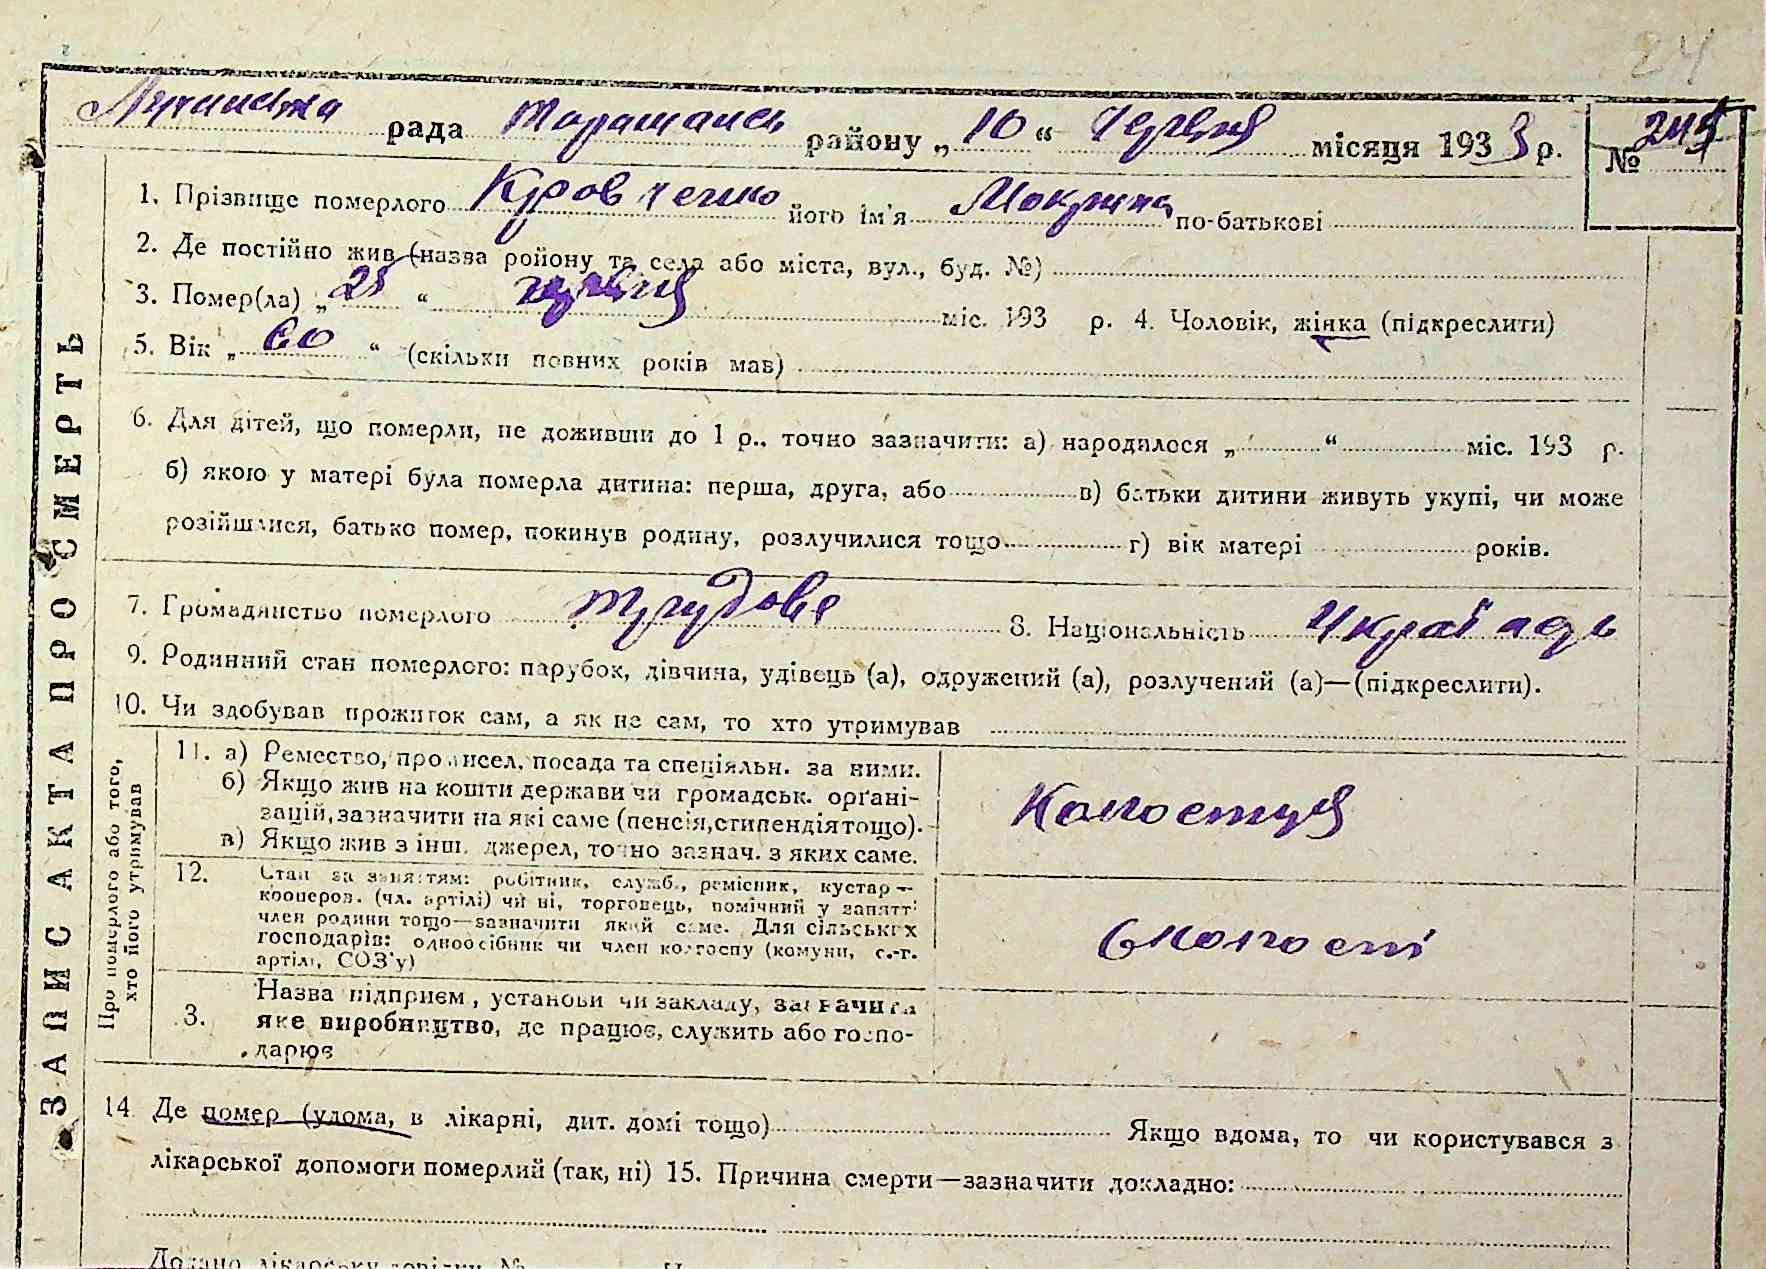 24
Лучанська рада Таращансь району „10“ Червня місяця 1933 р. №
1. Прізвище померлого Кровченко його ім'я Мокрина по-батькові
2. Де постійно жив (назва району та села або міста, вул., буд. №)
3. Помер(ла) „ “ червня міс. 193 р. 4. Чоловік, жінка (підкреслити)
5. Вік „60“ (скільки повних років мав)
6. Для дітей, що померли, не доживши до 1 р., точно зазначити: а) народилося „ “ міс. 193 р.
б) якою у матері була померла дитина: перша, друга, або в) батьки дитини живуть укупі, чи може
розійшлися, батько помер, покинув родину, розлучилися тощо г) вік матері років.
7. Громадянство померлого трудове 8. Національність Україн
9. Родинний стан померлого: парубок, дівчина, удівець (а), одружений (а), розлучений (а)—(підкреслити).
10. Чи здобував прожиток сам, а як не сам, то хто утримував
ЗАПИС АКТА ПРО СМЕРТЬ
Про померлого або того,
хто його утримував
11. а) Ремество, промисел, посада та спеціяльн. за ними.
б) Якщо жив на кошти держави чи громадськ. орґані-
зацій, зазначити на які саме (пенсія, стипендія тощо).
в) Якщо жив з інш. джерел, точно зазнач. з яких саме.
12. Стан за заняттям: робітник, служб., ремісник, кустар—
кооперов. (чл. артілі) чи ні, торговець, помічний у занятті
член родини тощо—зазначити який саме. Для сільських
господарів: одноосібник чи член колгоспу (комуни, с.-г.
артілі, СОЗ'у)
3. Назва підприєм, установи чи закладу, зазначити
яке виробництво, де працює, служить або госпо-
дарює
14. Де помер (удома, в лікарні, дит. домі тощо) Якщо вдома, то чи користувався з
лікарської допомоги померлий (так, ні) 15. Причина смерти—зазначити докладно:
Додано лікарську довідку №